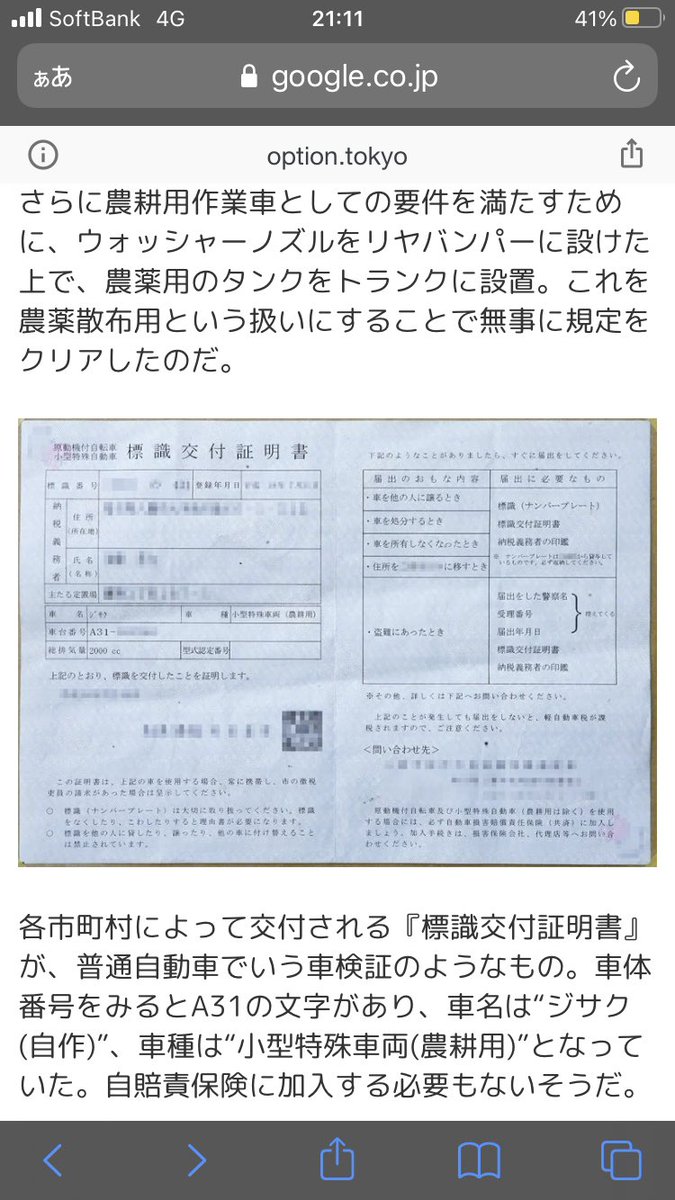 SoftBank 4G 21:11 41%
ぁあ google.co.jp
option.tokyo
さらに農耕用作業車としての要件を満たすため
に、ウォッシャーノズルをリヤバンパーに設けた
上で、農薬用のタンクをトランクに設置。これを
農薬散布用という扱いにすることで無事に規定を
クリアしたのだ。
原動機付自転車
小型特殊自動車 標識交付証明書
標識番号 登録年月日
納税義務者
住所
(所在地)
氏名
(名称)
主たる定置場
車名 ジサク 車種 小型特殊車両(農耕用)
車台番号 A31-
総排気量 2000 cc 型式認定番号
上記のとおり、標識を交付したことを証明します。
この証明書は、上記の車を使用する場合、常に携帯し、市の徴税
吏員の請求があった場合は呈示してください。
○ 標識(ナンバープレート)は大切に取り扱ってください。標識
をなくしたり、こわしたりすると理由書が必要になります。
○ 標識を他の人に貸したり、譲ったり、他の車に付け替えること
は禁止されています。
下記のようなことがありましたら、すぐに届出をしてください。
届出のおもな内容 届出に必要なもの
・車を他の人に譲るとき
・車を処分するとき
・車を所有しなくなったとき
・住所を に移すとき
標識(ナンバープレート)
標識交付証明書
納税義務者の印鑑
※ ナンバープレートは から貸与して
いるものです。必ず返納してください。
・盗難にあったとき
届出をした警察名
受理番号
届出年月日
控えてくる
標識交付証明書
納税義務者の印鑑
※その他、詳しくは下記へお問い合わせください。
上記のことが発生しても届出をしないと、軽自動車税が課
税されますので、ご注意ください。
<問い合わせ先>
原動機付自転車及び小型特殊自動車(農耕用は除く)を使用
する場合には、必ず自動車損害賠償責任保険(共済)に加入し
ましょう。加入手続きは、損害保険会社、代理店等へお問い合
わせください。
各市町村によって交付される『標識交付証明書』
が、普通自動車でいう車検証のようなもの。車体
番号をみるとA31の文字があり、車名は“ジサク
(自作)”、車種は“小型特殊車両(農耕用)”となって
いた。自賠責保険に加入する必要もないそうだ。